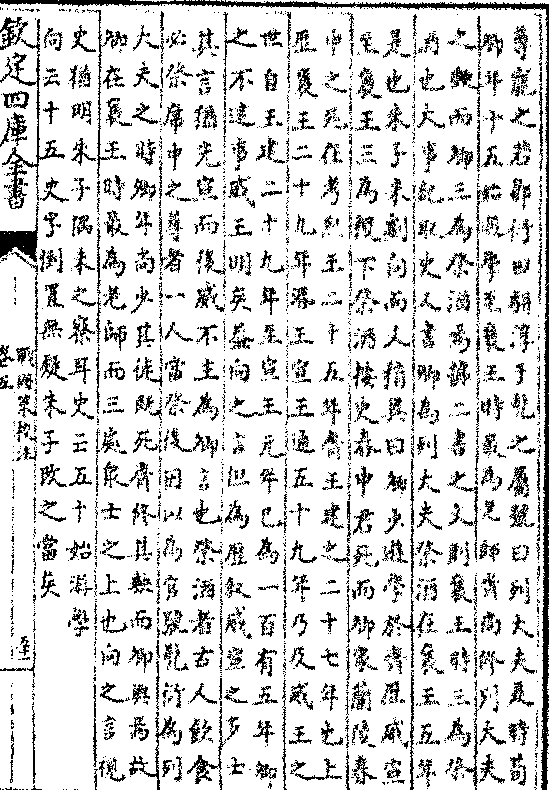 尊寵之若鄒衍田駢淳于髡之屬號曰列大夫是時荀
卿年十五始來學至襄王時最為老師齊尚修列大夫
之缺而卿三為祭酒焉據二書之文則襄王時三為祭
酒也大事記取史入書卿為列大夫祭酒在襄王五年
是也朱子采劉向而人猶異曰卿少遊學於齊歷威宣
至襄王三為稷下祭酒按史春申君死而卿家蘭陵春
申之死在考烈王二十五年齊王建之二十七年也上
歷襄王二十九年湣王宣王通五十九年乃及威王之
世自王建二十九年至宣王元年已為一百有五年卿
之不逮事威王明矣蓋向之言但為歷叙威宣之多士
其言猶光宣而後威不主為卿言也祭酒者古人飲食
必祭席中之尊者一人當祭後因以為官號髡衍為列
大夫之時卿年尚少其徒既死齊修其缺而卿與焉故
卿在襄王時最為老師而三處衆士之上也向之言視
史猶明朱子偶未之察耳史云五十始游學
向云十五史字倒置無疑朱子改之當矣
欽定四庫全書
戰國策校注
卷五